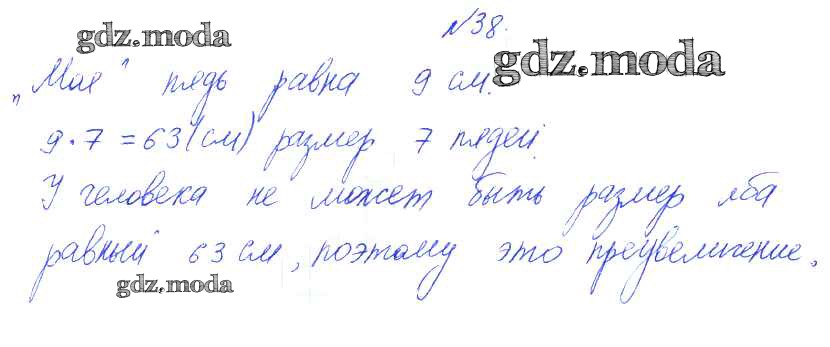 №38.
gdz.moda
gdz.moda
„Моя“ пядь равна 9 см.
9·7=63(см) размер 7 пядей.
У человека не может быть размер лба
равный 63 см, поэтому это преувеличение.
gdz.moda